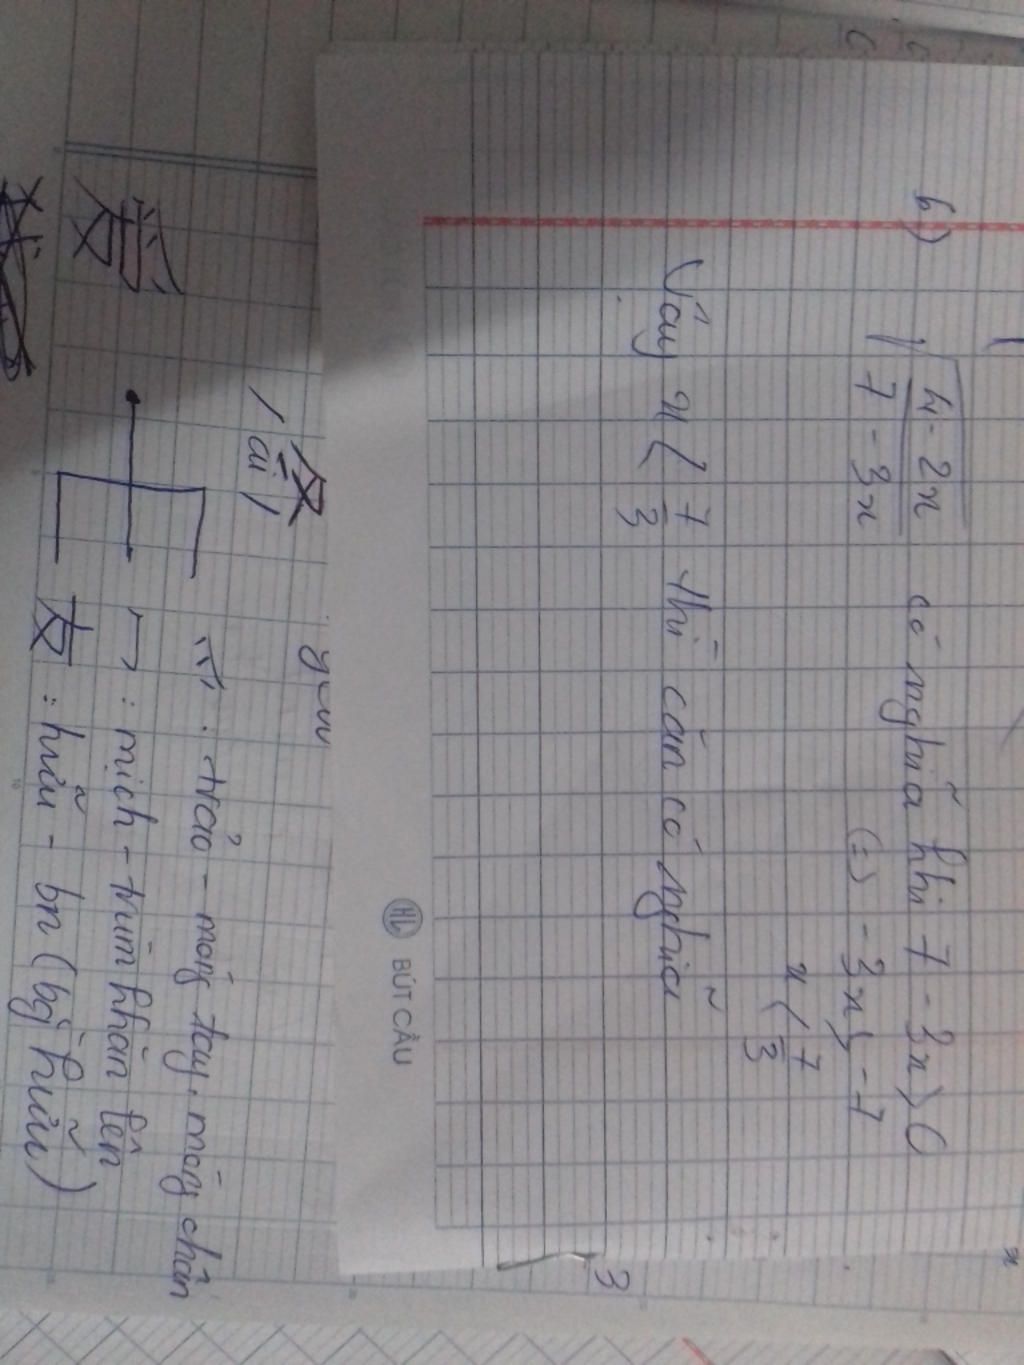 b) √(4-2x / 7-3x) có nghĩa khi 7-3x > 0
(=) -3x > -7
x < 7/3
Vậy x < 7/3 thì căn có nghĩa
HL BÚT CẦU
3
爱
/ ái /
爫 : trảo - móng tay, móng chân
冖 : mịch - trùm khăn lên
友 : hữu - bn (bằng hữu)